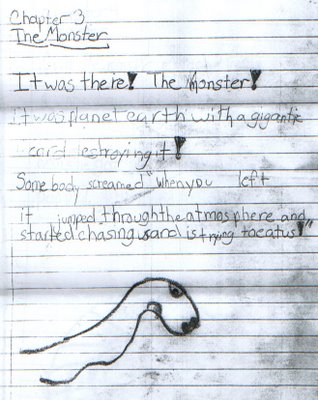 Chapter 3
The Monster
It was there! The Monster!
It was planet earth with a gigantic
estroying it!
Somebody screamed "when you left
it jumped through the atmosphere and
started chasing us and is trying to eat us!"